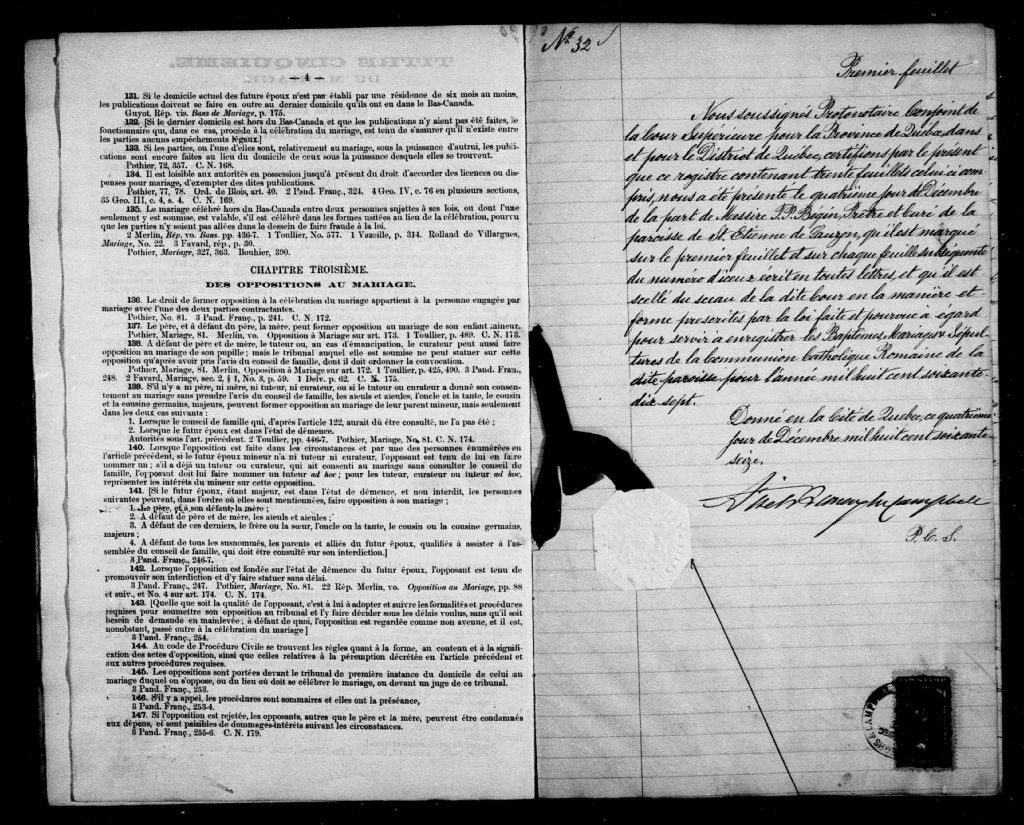 — 4 —
131. Si le domicile actuel des futurs époux n'est pas établi par une résidence de six mois au moins,
les publications doivent se faire en outre au dernier domicile qu'ils ont eu dans le Bas-Canada.
Guyot, Rép. vis. Bans de Mariage, p. 175.
132. [Si le dernier domicile est hors du Bas-Canada et que les publications n'y aient pas été faites, le
fonctionnaire qui, dans ce cas, procède à la célébration du mariage, est tenu de s'assurer qu'il n'existe entre
les parties aucuns empêchements légaux.]
133. Si les parties, ou l'une d'elles sont, relativement au mariage, sous la puissance d'autrui, les publi-
cations sont encore faites au lieu du domicile de ceux sous la puissance desquels elles se trouvent.
Pothier, 72, 357. C. N. 168.
134. Il est loisible aux autorités en possession jusqu'à présent du droit d'accorder des licences ou dis-
penses pour mariage, d'exempter des dites publications.
Pothier, 77, 78. Ord. de Blois, art. 40. 2 Pand. Franç., 324. 4 Geo. IV, c. 76 en plusieurs sections,
35 Geo. III, c. 4, s. 4. C. N. 169.
135. Le mariage célébré hors du Bas-Canada entre deux personnes sujettes à ses lois, ou dont l'une
seulement y est soumise, est valable, s'il est célébré dans les formes usitées au lieu de la célébration, pourvu
que les parties n'y soient pas allées dans le dessein de faire fraude à la loi.
2 Merlin, Rép. vo. Bans. pp. 436-7. 1 Toullier, No. 577. 1 Vazeille, p. 314. Rolland de Villargues,
Mariage, No. 22. 3 Favard, rép., p. 30.
Pothier, Mariage, 327, 363. Bouhier, 390.
CHAPITRE TROISIÈME.
DES OPPOSITIONS AU MARIAGE.
136. Le droit de former opposition à la célébration du mariage appartient à la personne engagée par
mariage avec l'une des deux parties contractantes.
Pothier, No. 81. 3 Pand. Franç., p. 241. C. N. 172.
137. Le père, et à défaut du père, la mère, peut former opposition au mariage de son enfant mineur.
Pothier, Mariage, 81. Merlin, vo. Opposition à Mariage sur art. 173. 1 Toullier, p. 489. C. N. 173.
138. A défaut de père et de mère, le tuteur ou, au cas d'émancipation, le curateur peut aussi faire
opposition au mariage de son pupille; mais le tribunal auquel elle est soumise ne peut statuer sur cette
opposition qu'après avoir pris l'avis du conseil de famille, dont il doit ordonner la convocation.
Pothier, Mariage, 81. Merlin, Opposition à Mariage sur art. 172. 1 Toullier, p. 425, 490. 3 Pand. Fran.,
248. 2 Favard, Mariage, sec. 2, § 1, No. 3, p. 59. 1 Delv. p. 62. C. N. 175.
139. S'il n'y a ni père, ni mère, ni tuteur, ni curateur, ou si le tuteur ou curateur a donné son consen-
tement au mariage sans prendre l'avis du conseil de famille, les aïeuls et aïeules, l'oncle et la tante, le cousin
et la cousine germains, majeurs, peuvent former opposition au mariage de leur parent mineur, mais seulement
dans les deux cas suivants :
1. Lorsque le conseil de famille qui, d'après l'article 122, aurait dû être consulté, ne l'a pas été ;
2. Lorsque le futur époux est dans l'état de démence.
Autorités sous l'art. précédent. 2 Toullier, pp. 446-7. Pothier, Mariage, No. 81. C. N. 174.
140. Lorsque l'opposition est faite dans les circonstances et par une des personnes énumérées en
l'article précédent, si le futur époux mineur n'a ni tuteur ni curateur, l'opposant est tenu de lui en faire
nommer un ; s'il a déjà un tuteur ou curateur, qui ait consenti au mariage sans consulter le conseil de
famille, l'opposant doit lui faire nommer un tuteur ad hoc ; pour les tuteur, curateur ou tuteur ad hoc,
représenter les intérêts du mineur sur cette opposition.
141. [Si le futur époux, étant majeur, est dans l'état de démence, et non interdit, les personnes
suivantes peuvent, dans l'ordre où elles sont mentionnées, faire opposition à son mariage ;
1. Le père, et à son défaut la mère ;
2. A défaut de père et de mère, les aïeuls et aïeules ;
3. A défaut de ces derniers, le frère ou la sœur, l'oncle ou la tante, le cousin ou la cousine germains,
majeurs ;
4. A défaut de tous les susnommés, les parents et alliés du futur époux, qualifiés à assister à l'as-
semblée du conseil de famille, qui doit être consulté sur son interdiction.]
3 Pand. Franç., 246-7.
142. Lorsque l'opposition est fondée sur l'état de démence du futur époux, l'opposant est tenu de
promouvoir son interdiction et d'y faire statuer sans délai.
3 Pand. Franç., 247. Pothier, Mariage, No. 81. 22 Rép. Merlin, vo. Opposition au Mariage, pp. 88
et suiv., et No. 4 sur art. 174. C. N. 174.
143. [Quelle que soit la qualité de l'opposant, c'est à lui à adopter et suivre les formalités et procédures
requises pour soumettre son opposition au tribunal et l'y faire décider sous les délais voulus, sans qu'il soit
besoin de demande en mainlevée ; à défaut de quoi, l'opposition est regardée comme non avenue, et il est,
nonobstant, passé outre à la célébration du mariage]
3 Pand. Franç., 254.
144. Au code de Procédure Civile se trouvent les règles quant à la forme, au contenu et à la signifi-
cation des actes d'opposition, ainsi que celles relatives à la péremption décrétée en l'article précédent et
aux autres procédures requises.
145. Les oppositions sont portées devant le tribunal de première instance du domicile de celui au
mariage duquel on s'oppose, ou du lieu où doit se célébrer le mariage, ou devant un juge de ce tribunal.
3 Pand. Franç., 253.
146. S'il y a appel, les procédures sont sommaires et elles ont la préséance,
3 Pand. Franç., 253-4.
147. Si l'opposition est rejetée, les opposants, autres que le père et la mère, peuvent être condamnés
aux dépens, et sont passibles de dommages-intérêts suivant les circonstances.
3 Pand. Franç., 255-6. C. N. 179.
No 32
Premier feuillet
Nous soussignés Protonotaire Conjoint de
la Cour Supérieure pour la Province de Québec, dans
et pour le District de Québec, certifions par le présent
que ce registre contenant trente feuillets celui ci com
pris, nous a été présenté le quatrième jour de Décembre
de la part de Messire P.P. Bégin, Prêtre et Curé de la
paroisse de St. Etienne de Lauzon, qu'il est marqué
sur le premier feuillet et sur chaque feuille subséquente
du numéro d'iceux écrit en toutes lettres, et qu'il est
scellé du sceau de la dite Cour en la manière et
forme prescrites par la loi faite et pourvue à égard
pour servir à enregistrer les Baptêmes, Mariages & Sépul
tures de la Communion Catholique Romaine de la
dite paroisse pour l'année mil huit cent soixante
dix sept.
Donné en la Cité de Québec, ce quatrième
jour de Décembre mil huit cent soixante
seize.
Campbell
P. C. S.